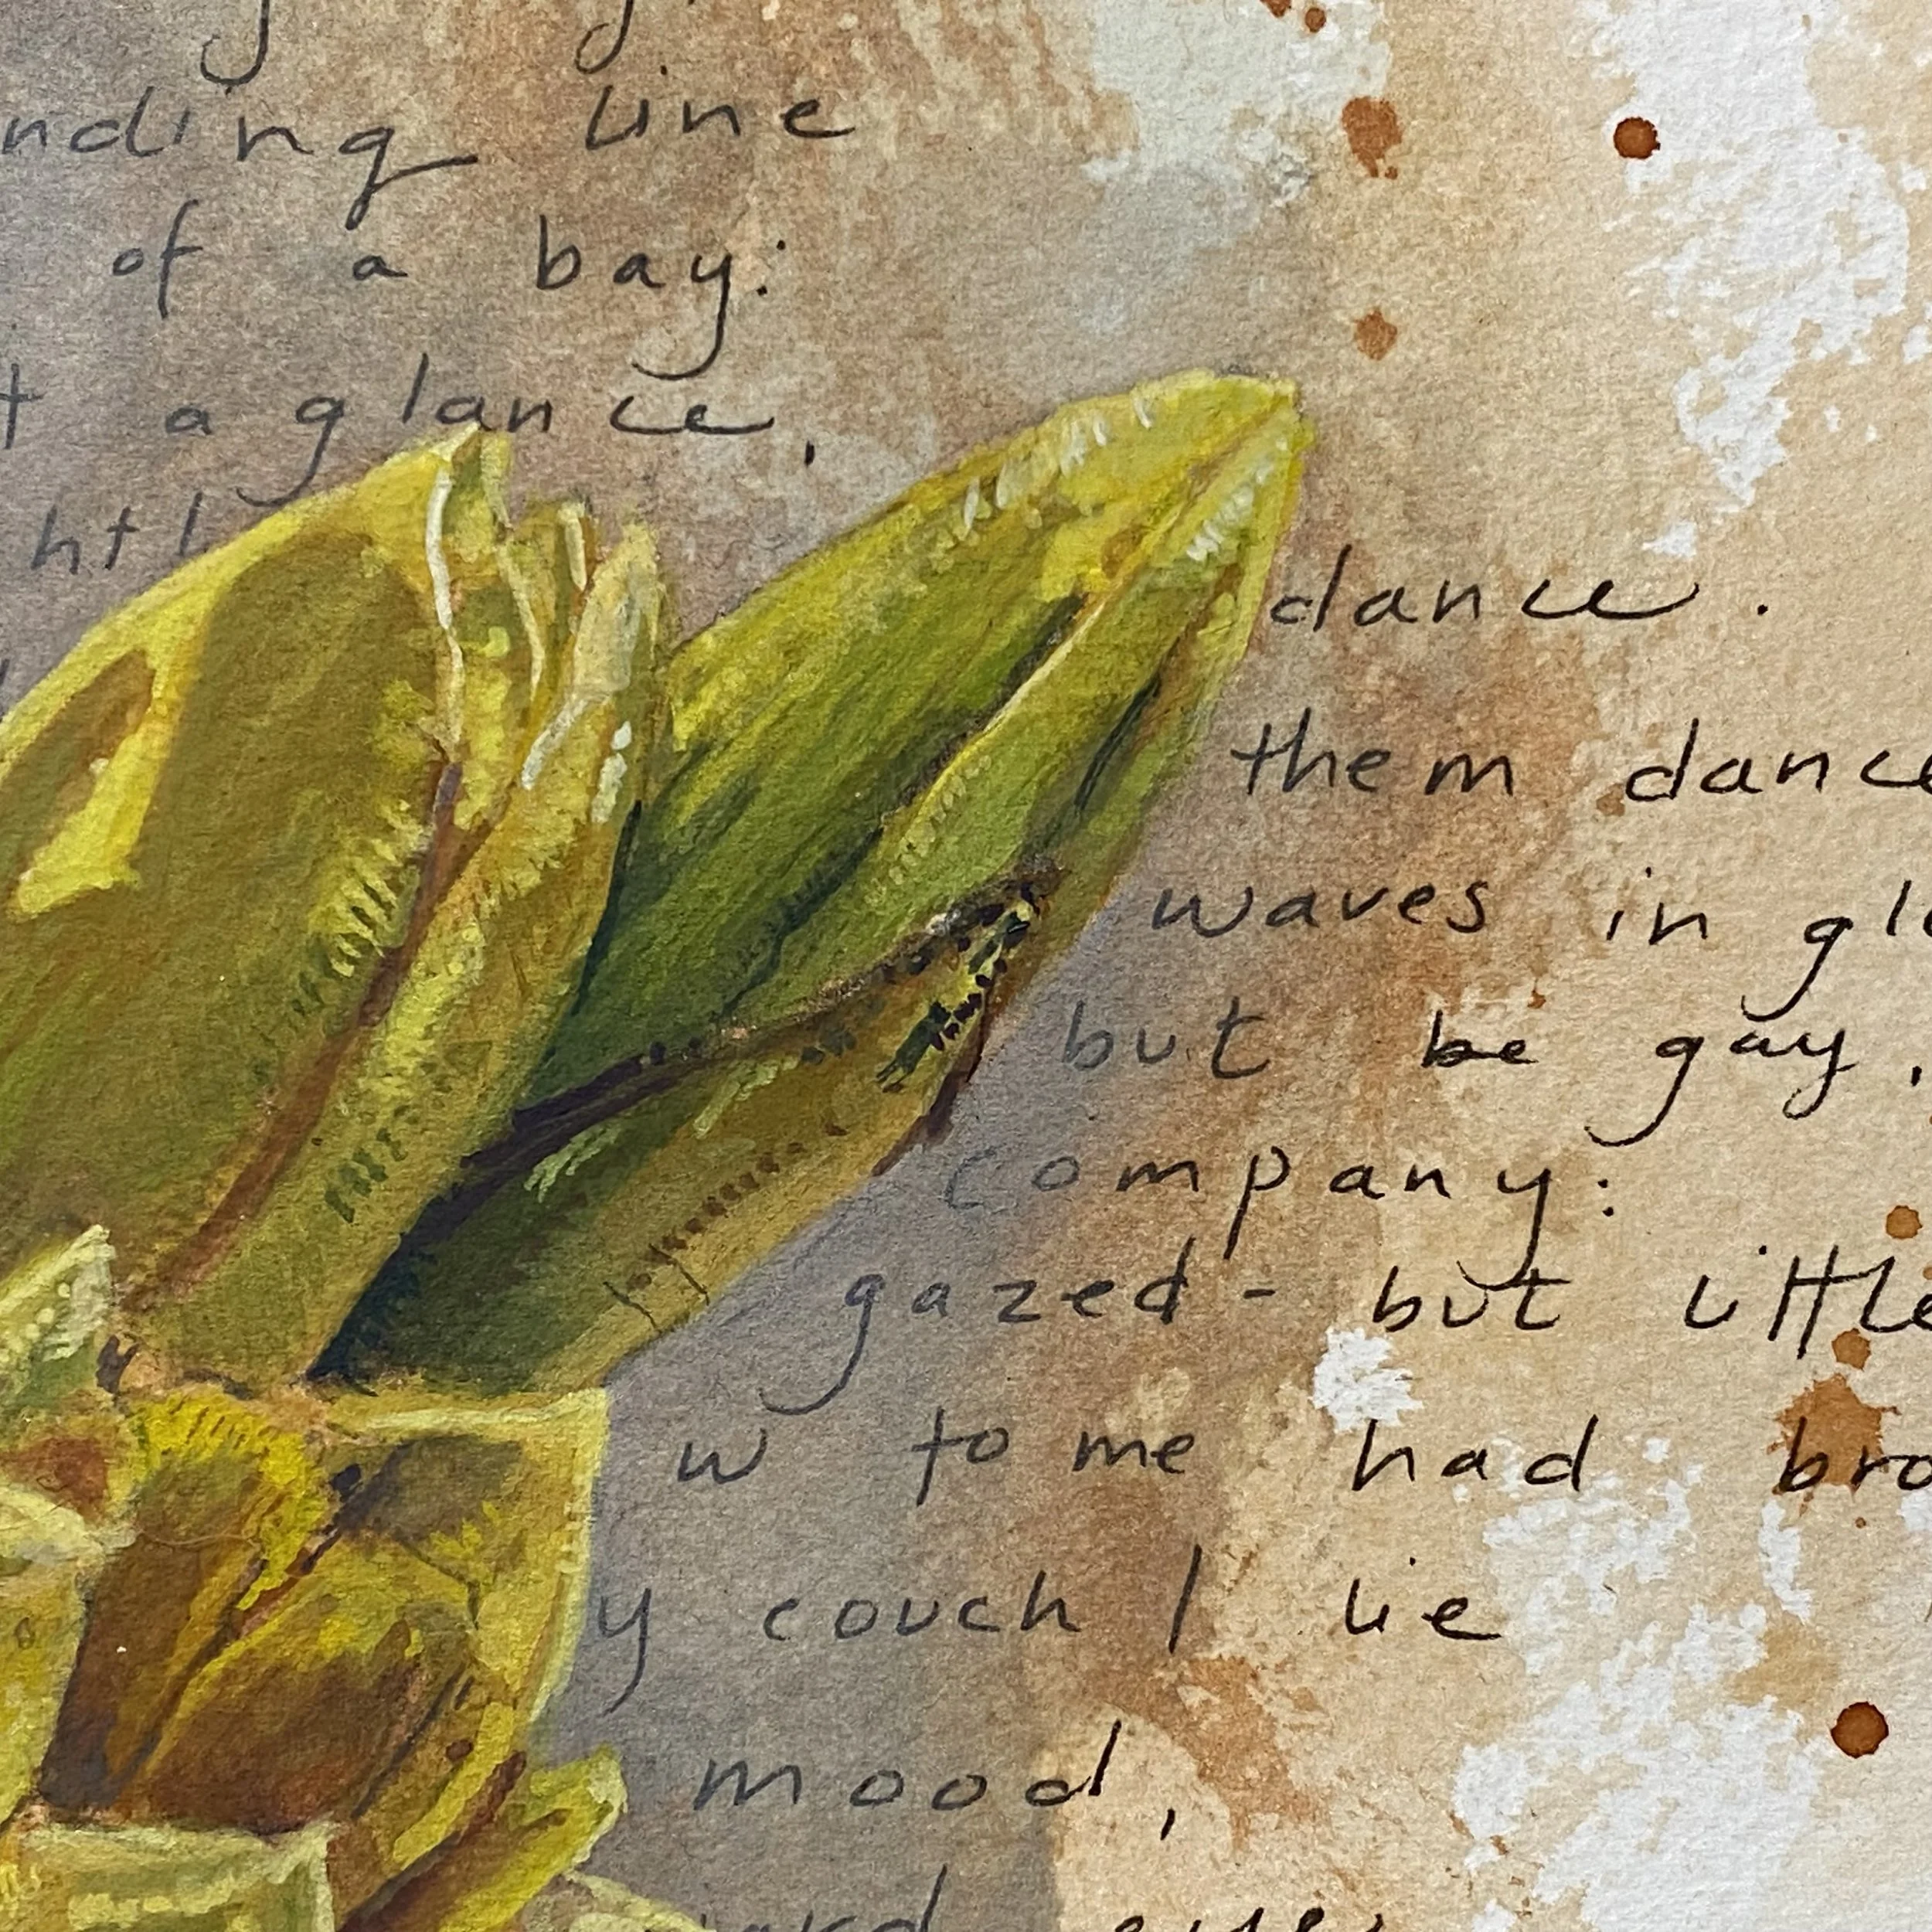 nding line
of a bay:
t a glance,
htl
dance.
them dance
waves in gl
but be gay,
company:
gazed- but little
w to me had bro
y couch I lie
mood,
ward eye